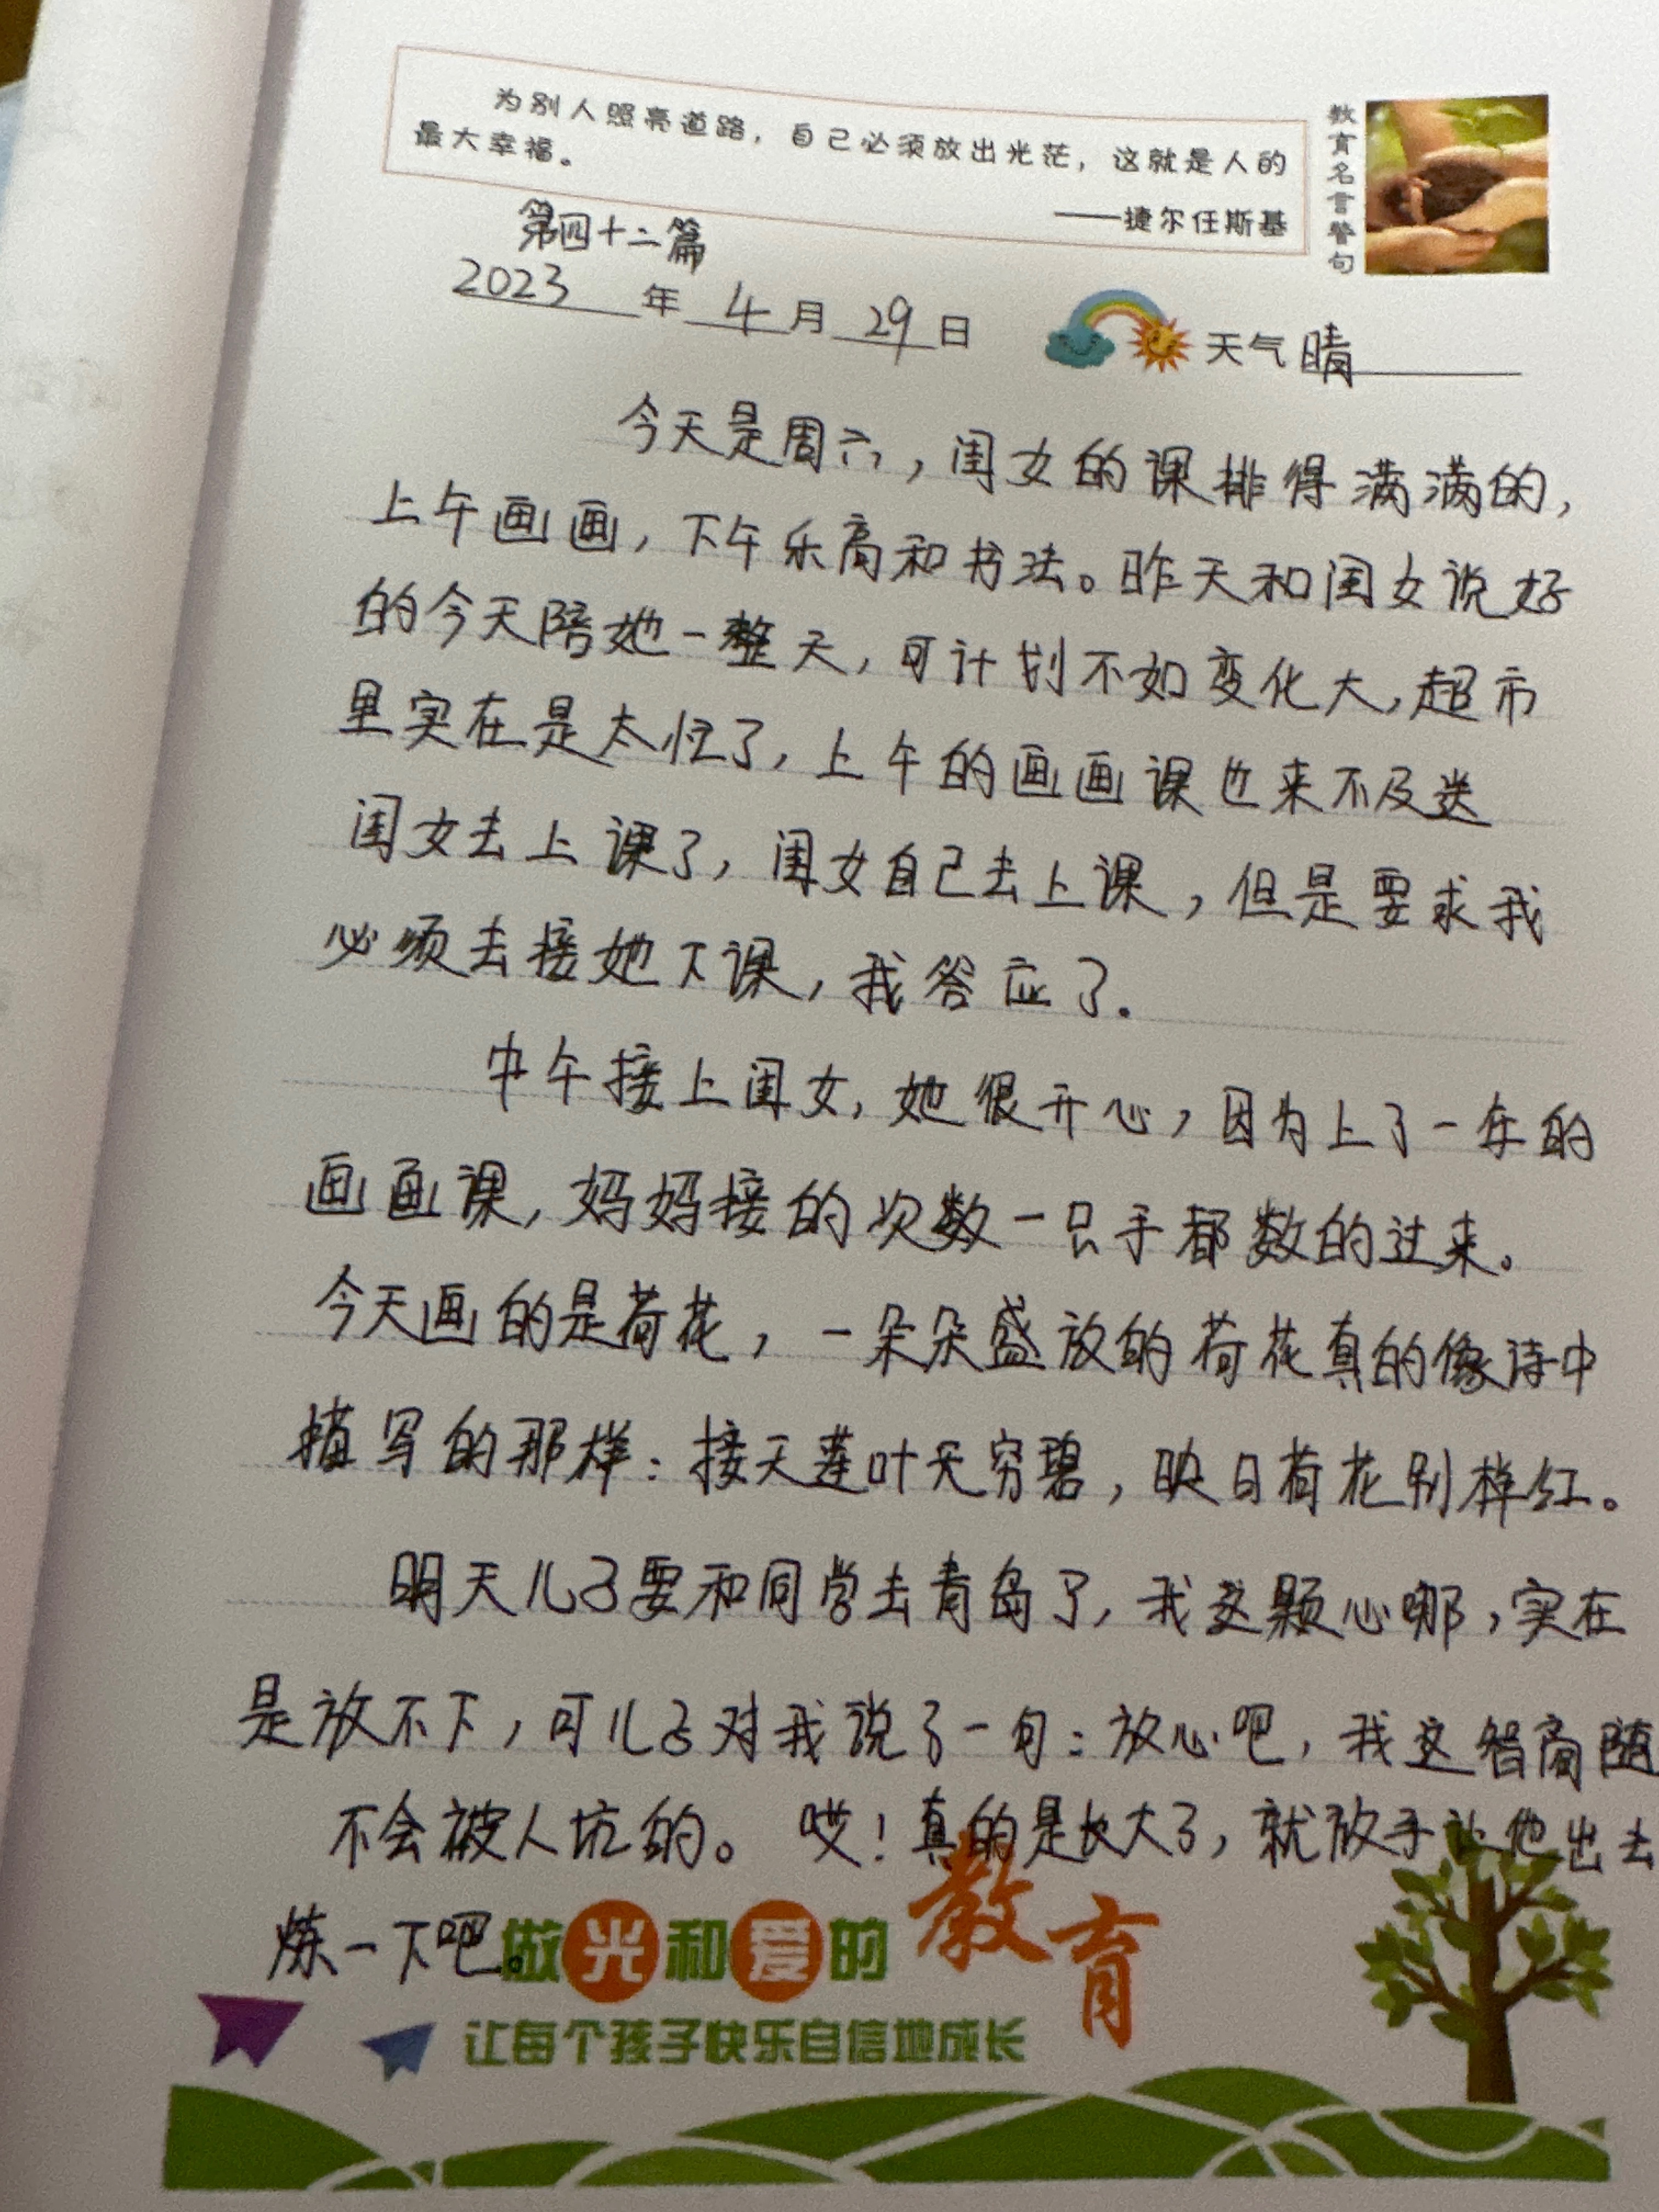 为别人照亮道路，自己必须放出光茫，这就是人的
最大幸福。
——捷尔任斯基
教育名言警句
第四十二篇
2023年4月29日 天气晴
今天是周六，闺女的课排得满满的，
上午画画，下午乐高和书法。昨天和闺女说好
的今天陪她一整天，可计划不如变化大，超市
里实在是太忙了，上午的画画课也来不及送
闺女去上课了，闺女自己去上课，但是要求我
必须去接她下课，我答应了.
中午接上闺女，她很开心，因为上了一年的
画画课，妈妈接的次数一只手都数的过来。
今天画的是荷花，一朵朵盛放的荷花真的像诗中
描写的那样：接天莲叶无穷碧，映日荷花别样红。
明天儿子要和同学去青岛了，我这颗心哪，实在
是放不下，可儿子对我说了一句：放心吧，我这智商随
不会被人坑的。哎！真的是长大了，就放手让他出去
炼一下吧。
做光和爱的教育
让每个孩子快乐自信地成长